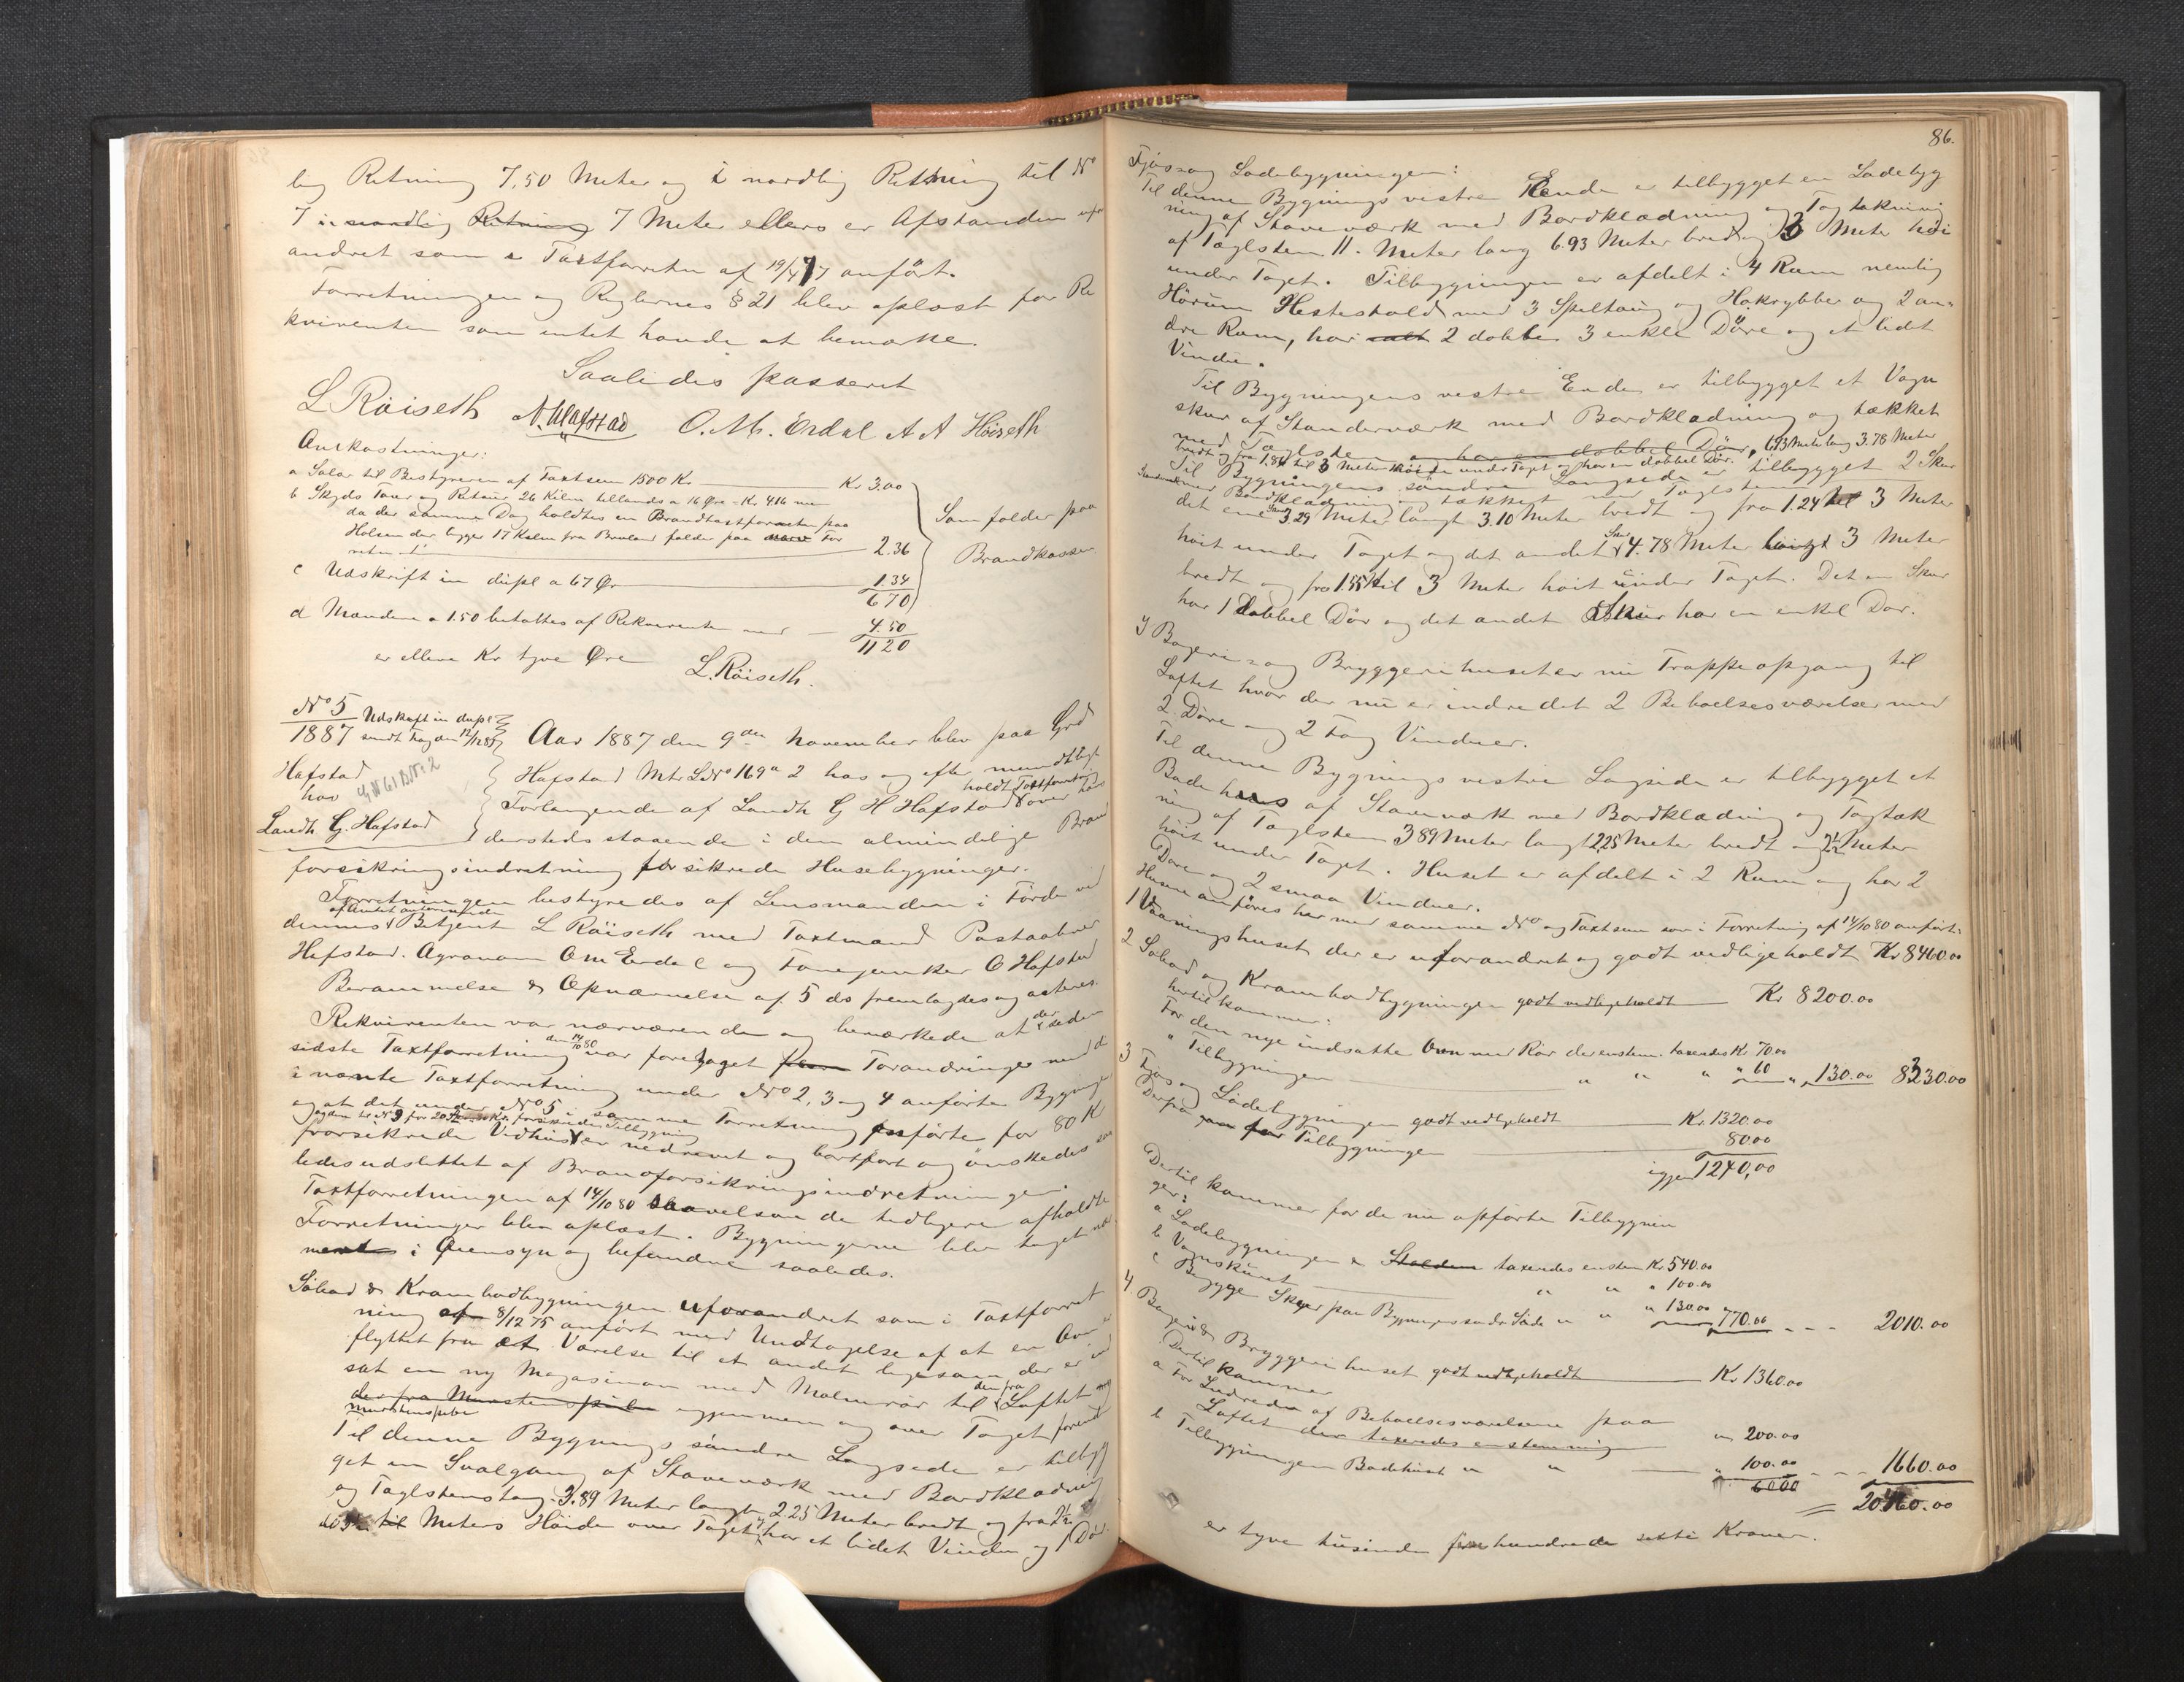 lig Retning 7,50 Meter og i nordlig Retning til No
7 i nordlig Retning 7 Meter ellers er Afstanden ufor
andret som i Taxtforretn af 19/4 77 anført.
Forretningen og Reglernes § 21 blev oplæst for Re
kvirenten som intet havde at bemærke.
Saaledes passeret
L Røiseth N. Hafstad O. M. Erdal A A Høiseth
Omkostninger:
a Salær til Bestyreren af Taxtsum 1500 Kr Kr 3.00
b Skyds Tour og Retour 26 Kilm tillands a 16 Øre = Kr. 416 men
da der samme Dag holdtes en Brandtaxtforretn paa
Holsen der ligger 17 Kilm fra falder paa denne For
retn 2.36
c Udskrift in dupl a 67 Ør 1.34
670
Som falder paa
Brandkassen
d Mændene a 150 betaltes af Rekvirenten med 4.50
1120
er elleve Kr tyve Øre L. Røiseth.
No 5
1887 Udskrift in dupl
sendt fogden 12/12 87
Hafstad GN 61 BN 2
hos
Landh. G. Hafstad
Aar 1887 den 9de November blev paa Grd
Hafstad Mtr LNo 169a 2 hos og efter mundtligt
Forlangende af Landh G H Hafstad holdt Taxtforretning over hos
dersteds staaende i den almindelige Brand
forsikringsindretning forsikrede Husebygninger.
Forretningen bestyredes af Lensmanden i Førde ved
dennes af Amtet autoriserede Betjent L Røiseth med Taxtmænd Postaabner
Hafstad. Agronom O M Erdal og Fanejunker O Hafstad
Berammelse & Opnævnelse af 5 ds fremlagdes og acteres.
Rekvirenten var nærværende og bemærkede at der siden
sidste Taxtforretning den 14/10 80 var foretaget Forandringer med de
i nævnte Taxtforretning under No 2, 3 og 4 anførte Bygninger
og at det under No 5 i samme Forretning anførte for 80 Kr
forsikrede Vedhus er nedrevet og bortført og ønskedes saa
ledes udslettet af Brandforsikringsindretningen.
Taxtforretningen af 14/10 80 saavelsom de tidligere afholdte
Forretninger blev oplæst. Bygningerne blev taget nær
mere i Øiensyn og befandtes saaledes.
Søbod & Krambodbygningen uforandret som i Taxtforret
ning af 8/12 75 anført med Undtagelse af at en Ovn er
flyttet fra et Værelse til et andet ligesom der er ind
sat en ny Magasinovn med Malmrør til Loftet og den fra
der fra Murstenspibe igjennem og over Taget forend
murstenspibe
Til denne Bygnings søndre Langside er tilbyg
get en Svalgang af Staveværk med Bordklædning
og Taglstenstag 3.89 Meter langt 2.25 Meter bredt og fra 2½
til Meters Høide over Taget, har et lidet Vindu og 1 Dør.
86.
Fjøs og Ladebygningen:
Til denne Bygnings vestre Ende er tilbygget en Ladebyg
ning af Staveværk med Bordklædning og Tagtækning
af Taglsten 11. Meter lang 6.93 Meter bred og 3 Meter høi
under Taget. Tilbygningen er afdelt i 4 Rum nemlig
Hørum Hestestald med 3 Spiltaug og Hakrybber og 2 an-
dre Rum, har 2 dobbe 3 enkle Døre og et lidet
Vindu.
Til Bygningens vestre Ende er tilbygget et Vogn
skur af Standerværk med Bordklædning og tækket
med Taglsten og har en dobbel Dør, 693 Meter lang 3.78 Meter
bredt og fra 1,84 til 3 Meter høide under Taget og har en dobbel Dør.
Til Bygningens søndre Langside er tilbygget 2 Skur
med Bordklædning og tækket med Taglsten
det ene Skur 3.29 Meter langt 3.10 Meter bredt og fra 1.24 til 3 Meter
høit under Taget og det andet Skur 4.78 Meter langt 3 Meter
bredt og fra 1.55 til 3 Meter høit under Taget. Det ene Skur
har 1 dobbel Dør og det andet Skur har en enkel Dør.
4 Bageri- og Bryggerihuset er nu Trappeopgang til
Loftet hvor der nu er indredet 2 Beboelsesværelser med
2 Døre og 2 Fag Vinduer.
Til denne Bygnings vestre Langside er tilbygget et
Badehus af Staveværk med Bordklædning og Tagtæk
ning af Taglsten 389 Meter langt 225 Meter bredt og 2½ Meter
høit under Taget. Huset er afdelt i 2 Rum og har 2
Døre og 2 smaa Vinduer.
Husene anføres her med samme No og Taxtsum som i Forretning af 14/10 80 anført:
1 Vaaningshuset der er uforandret og godt vedligeholdt Kr 8460.00
2 Søbod og Krambodbygningen godt vedligeholdt Kr 8200.00
hertil kommer:
For den nye indsatte Ovn med Rør der enstem. taxeredes Kr. 70.00
" Tilbygningen " " " " 60 " 130.00 8330.00
3 Fjøs og Ladebygningen godt vedligeholdt Kr. 1320.00
Derfra for Tilbygningen 80.00
igjen 1240,00
Dertil kommer for de nu opførte Tilbygnin
ger:
a Ladebygningen & Stalden taxeredes enstem Kr. 540.00
b Vognskuret " " " 100.00
c Begge Skur paa Bygningens søndre Side " " " 130.00 770.00 2010.00
4 Bageri & Bryggerihuset godt vedligeholdt Kr 1360.00
Dertil kommer
a For Indredn af Beboelsesværelserne paa
Loftet der taxeredes enstemmig " 200.00
b Tilbygningen Badehuset " " " 100.00 1660.00
20460.00
er tyve tusinde fire hundrede sexti Kroner.